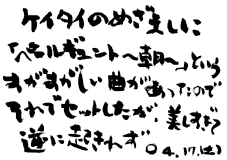 ケイタイのめざましに
「ペールギュント〜朝〜」という
すがすがしい曲があったので
それでセットしたが、美しすぎて
遂に起きれず
○4.17.(土)